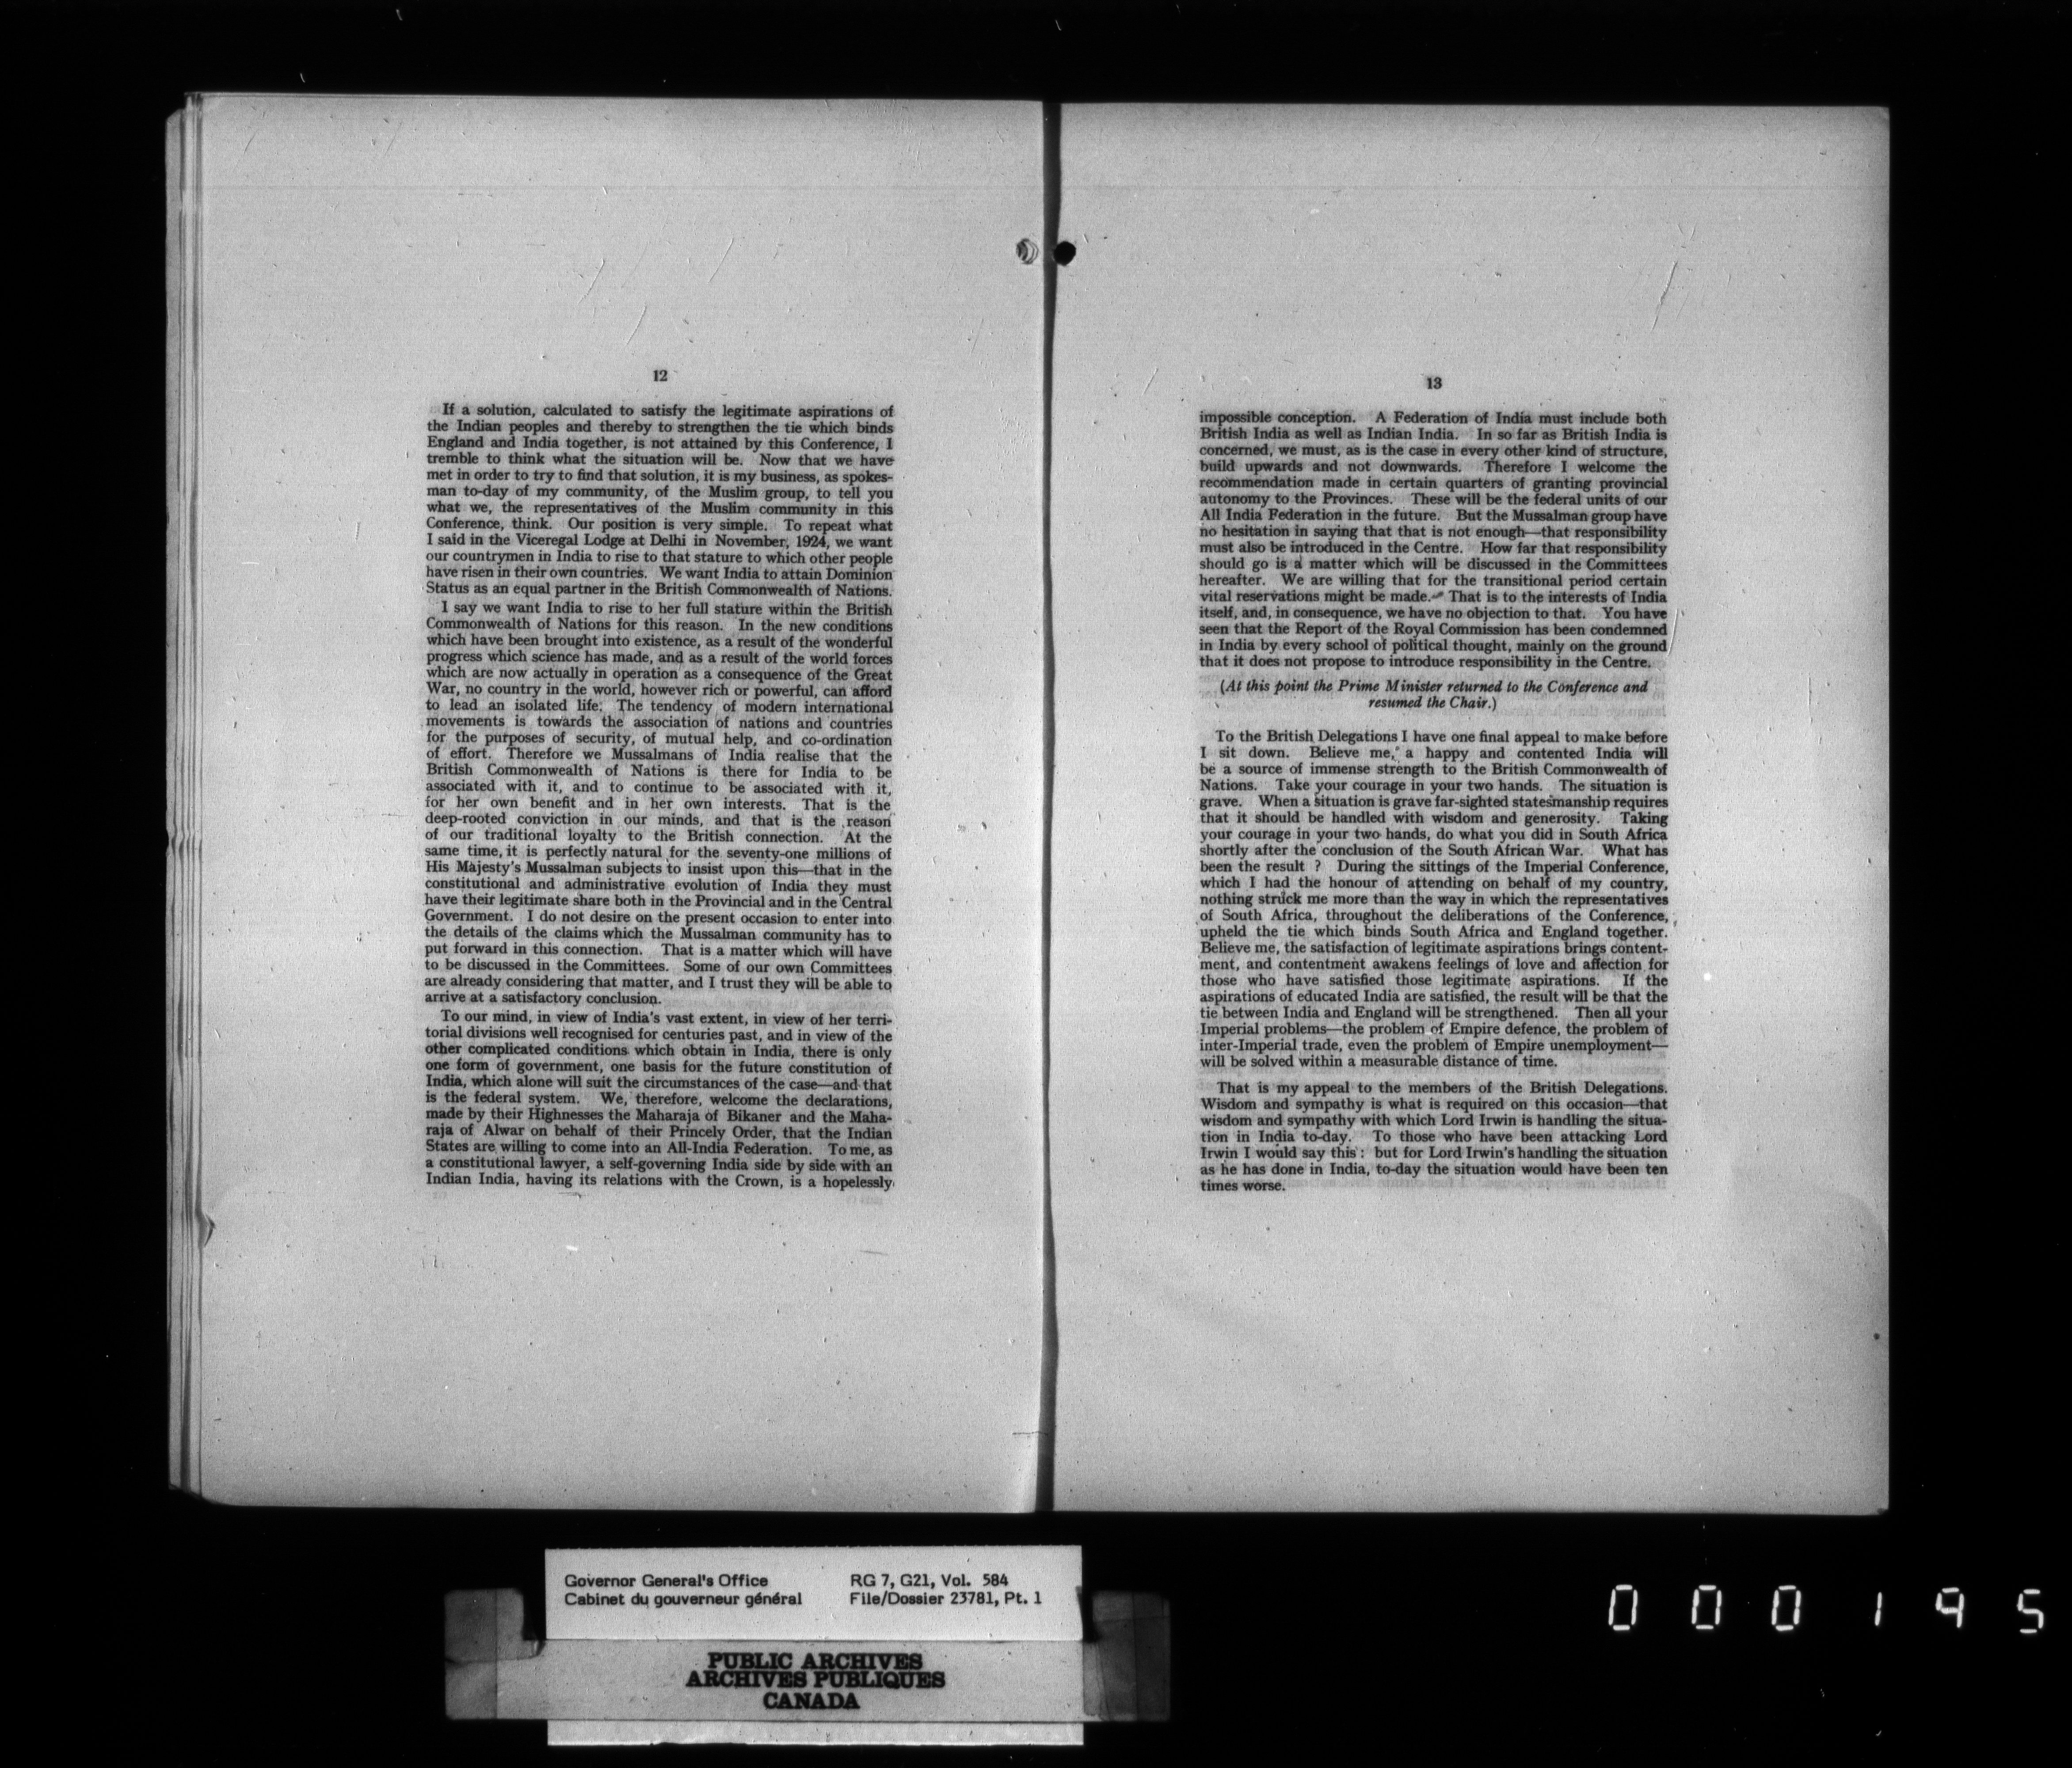 12
If a solution, calculated to satisfy the legitimate aspirations of
the Indian peoples and thereby to strengthen the tie which binds
England and India together, is not attained by this Conference, I
tremble to think what the situation will be. Now that we have
met in order to try to find that solution, it is my business, as spokes-
man to-day of my community, of the Muslim group, to tell you
what we, the representatives of the Muslim community in this
Conference, think. Our position is very simple. To repeat what
I said in the Viceregal Lodge at Delhi in November, 1924, we want
our countrymen in India to rise to that stature to which other people
have risen in their own countries. We want India to attain Dominion
Status as an equal partner in the British Commonwealth of Nations.
I say we want India to rise to her full stature within the British
Commonwealth of Nations for this reason. In the new conditions
which have been brought into existence, as a result of the wonderful
progress which science has made, and as a result of the world forces
which are now actually in operation as a consequence of the Great
War, no country in the world, however rich or powerful, can afford
to lead an isolated life. The tendency of modern international
movements is towards the association of nations and countries
for the purposes of security, of mutual help, and co-ordination
of effort. Therefore we Mussalmans of India realise that the
British Commonwealth of Nations is there for India to be
associated with it, and to continue to be associated with it,
for her own benefit and in her own interests. That is the
deep-rooted conviction in our minds, and that is the reason
of our traditional loyalty to the British connection. At the
same time, it is perfectly natural for the seventy-one millions of
His Majesty's Mussalman subjects to insist upon this—that in the
constitutional and administrative evolution of India they must
have their legitimate share both in the Provincial and in the Central
Government. I do not desire on the present occasion to enter into
the details of the claims which the Mussalman community has to
put forward in this connection. That is a matter which will have
to be discussed in the Committees. Some of our own Committees
are already considering that matter, and I trust they will be able to
arrive at a satisfactory conclusion.
To our mind, in view of India's vast extent, in view of her terri-
torial divisions well recognised for centuries past, and in view of the
other complicated conditions which obtain in India, there is only
one form of government, one basis for the future constitution of
India, which alone will suit the circumstances of the case—and that
is the federal system. We, therefore, welcome the declarations,
made by their Highnesses the Maharaja of Bikaner and the Maha-
raja of Alwar on behalf of their Princely Order, that the Indian
States are willing to come into an All-India Federation. To me, as
a constitutional lawyer, a self-governing India side by side with an
Indian India, having its relations with the Crown, is a hopelessly
13
impossible conception. A Federation of India must include both
British India as well as Indian India. In so far as British India is
concerned, we must, as is the case in every other kind of structure,
build upwards and not downwards. Therefore I welcome the
recommendation made in certain quarters of granting provincial
autonomy to the Provinces. These will be the federal units of our
All India Federation in the future. But the Mussalman group have
no hesitation in saying that that is not enough—that responsibility
must also be introduced in the Centre. How far that responsibility
should go is a matter which will be discussed in the Committees
hereafter. We are willing that for the transitional period certain
vital reservations might be made. That is to the interests of India
itself, and, in consequence, we have no objection to that. You have
seen that the Report of the Royal Commission has been condemned
in India by every school of political thought, mainly on the ground
that it does not propose to introduce responsibility in the Centre.
(At this point the Prime Minister returned to the Conference and
resumed the Chair.)
To the British Delegations I have one final appeal to make before
I sit down. Believe me, a happy and contented India will
be a source of immense strength to the British Commonwealth of
Nations. Take your courage in your two hands. The situation is
grave. When a situation is grave far-sighted statesmanship requires
that it should be handled with wisdom and generosity. Taking
your courage in your two hands, do what you did in South Africa
shortly after the conclusion of the South African War. What has
been the result ? During the sittings of the Imperial Conference,
which I had the honour of attending on behalf of my country,
nothing struck me more than the way in which the representatives
of South Africa, throughout the deliberations of the Conference,
upheld the tie which binds South Africa and England together.
Believe me, the satisfaction of legitimate aspirations brings content-
ment, and contentment awakens feelings of love and affection for
those who have satisfied those legitimate aspirations. If the
aspirations of educated India are satisfied, the result will be that the
tie between India and England will be strengthened. Then all your
Imperial problems—the problem of Empire defence, the problem of
inter-Imperial trade, even the problem of Empire unemployment—
will be solved within a measurable distance of time.
That is my appeal to the members of the British Delegations.
Wisdom and sympathy is what is required on this occasion—that
wisdom and sympathy with which Lord Irwin is handling the situa-
tion in India to-day. To those who have been attacking Lord
Irwin I would say this : but for Lord Irwin's handling the situation
as he has done in India, to-day the situation would have been ten
times worse.
Governor General's Office RG 7, G21, Vol. 584
Cabinet du gouverneur général File/Dossier 23781, Pt. 1
PUBLIC ARCHIVES
ARCHIVES PUBLIQUES
CANADA
000195